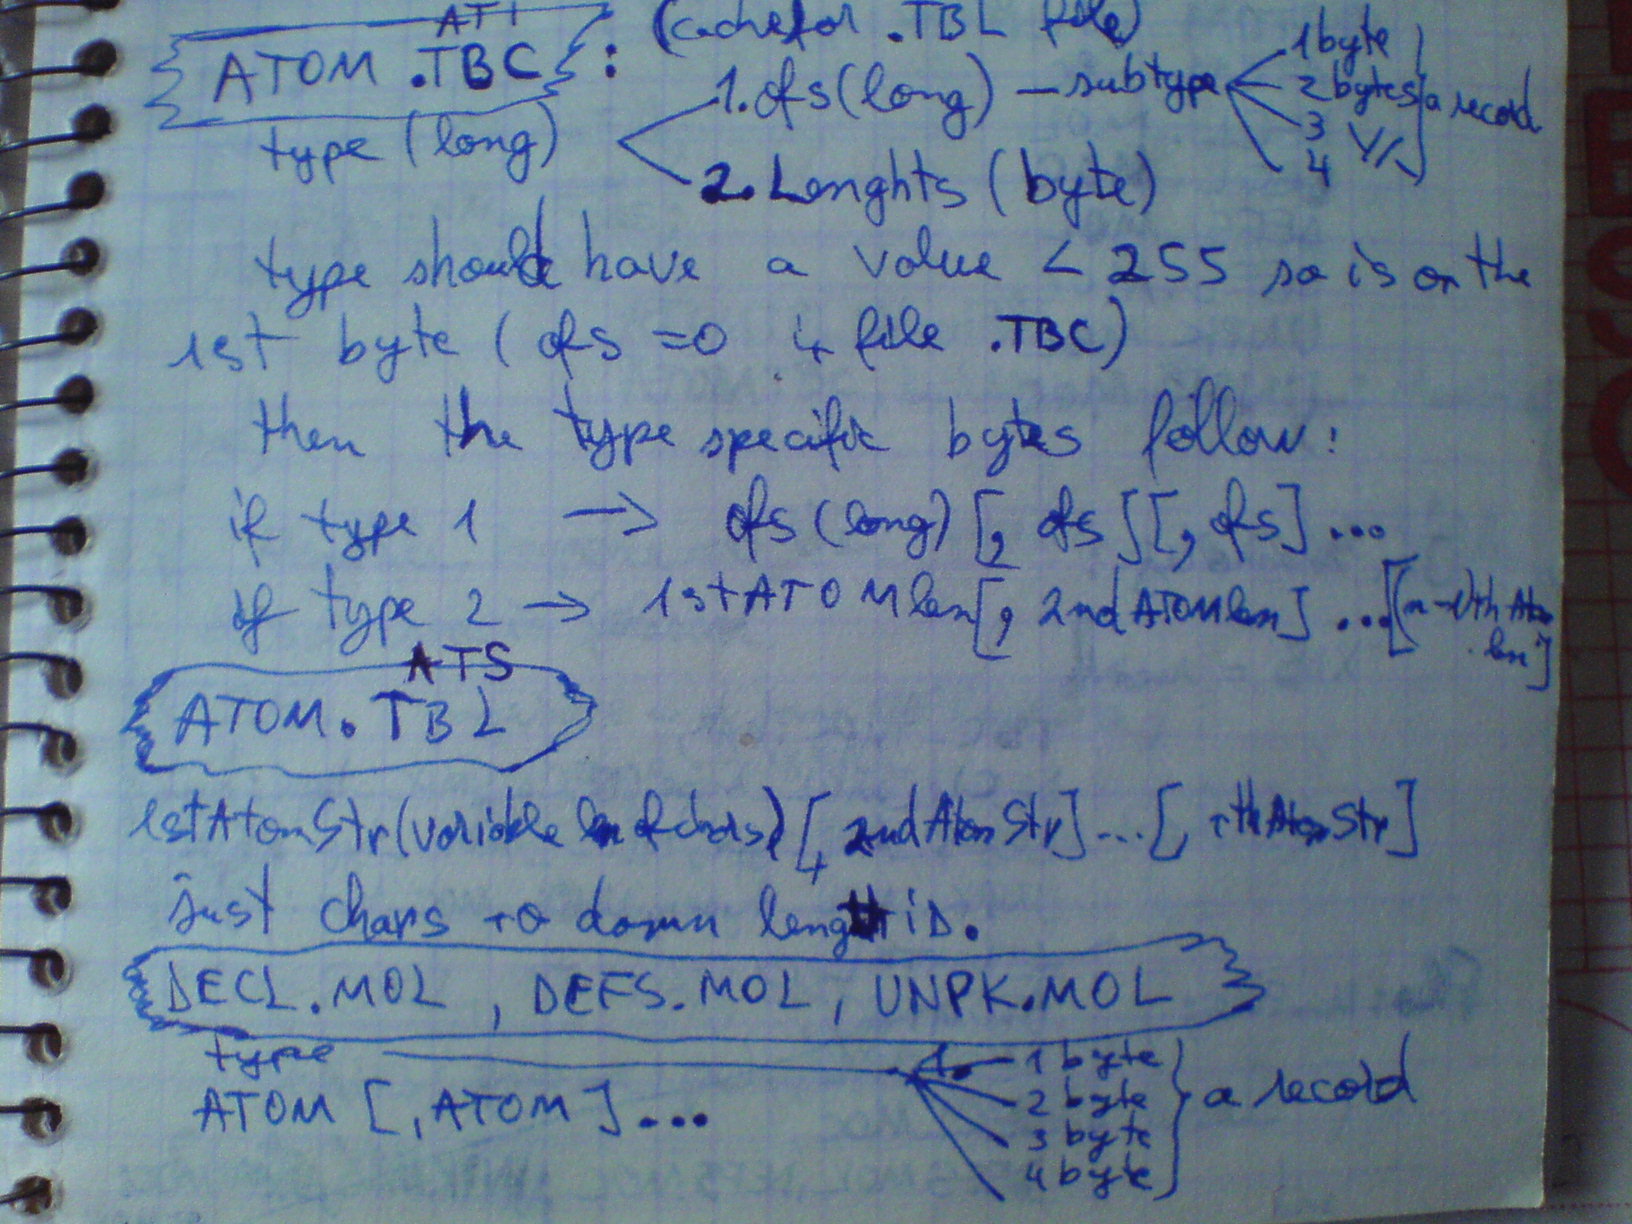 ATI
ATOM .TBC : (cache for .TBL file)
type (long)
1. ofs (long) — subtype
1 byte
2 bytes
3 \\//
4
a record
2. Lenghts (byte)
type should have a value < 255 so is on the
1st byte (ofs = 0 file .TBC)
then the type specific bytes follow:
if type 1 → ofs (long) [, ofs] [, ofs] ...
if type 2 → 1stATOMlen[, 2ndATOMlen] ...[(n-1)th Atom
len]
ATS
ATOM.TBL
1stAtomStr(variable len of chars) [, 2ndAtomStr] ... [, nthAtomStr]
just chars no len
DECL.MOL , DEFS.MOL , UNPK.MOL
type
1. 1 byte
2 byte
3 byte
4 byte
a record
ATOM [, ATOM] ...